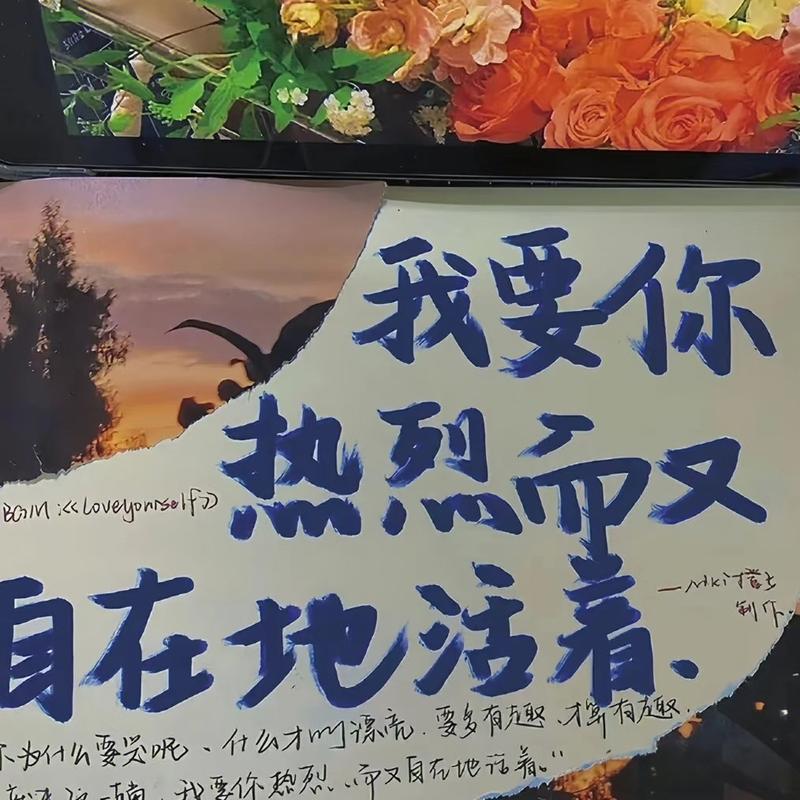 我要你
热烈而又
BGM:<<Loveyourself>>
自在地活着.
制作.
你为什么要哭呢、什么才叫漂亮.要多有趣、才算有趣.
我要你热烈、而又自在地活着。"